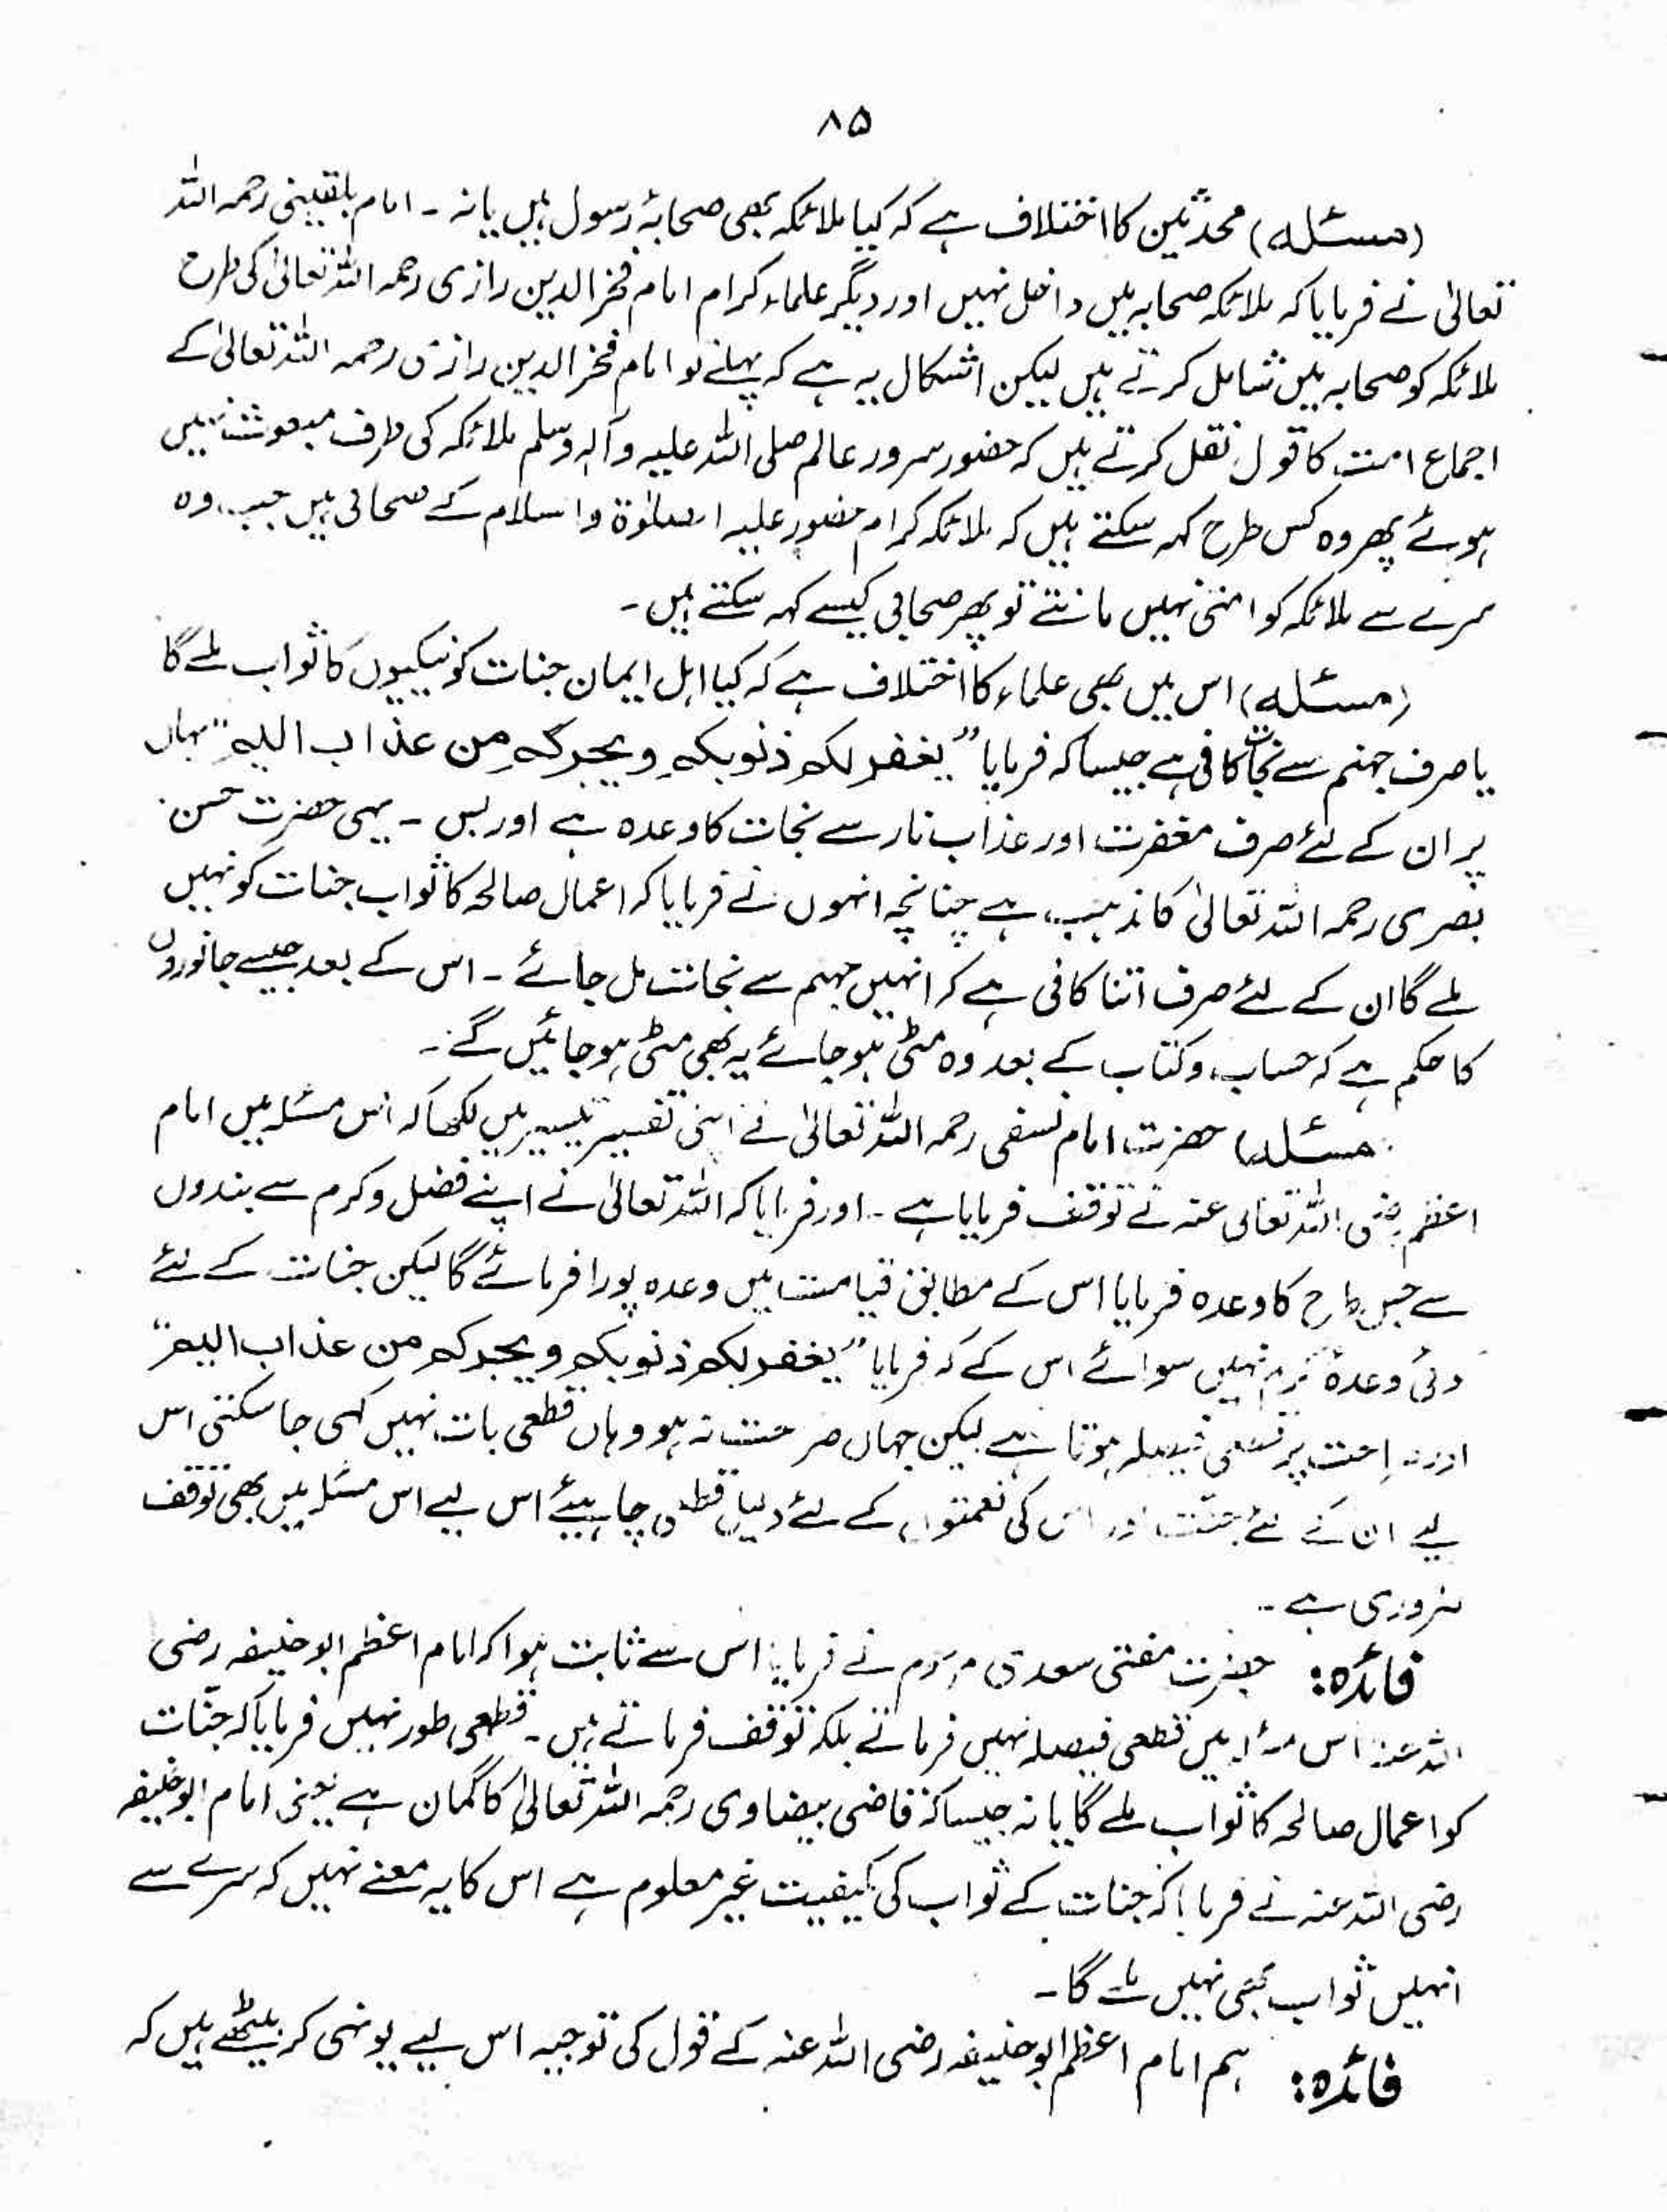 ۸۵
(مسئلہ) محدثین کا اختلاف ہے کہ کیا ملائکہ بھی صحابۂ رسول ہیں یا نہ ۔ امام بلقینی رحمہ اللہ
تعالیٰ نے فرمایا کہ ملائکہ صحابہ میں داخل نہیں اور دیگر علماء کرام امام فخر الدین رازی رحمہ اللہ تعالیٰ کی طرح
ملائکہ کو صحابہ میں شامل کرتے ہیں لیکن اشکال یہ ہے کہ پہلے تو امام فخر الدین رازی رحمہ اللہ تعالیٰ کے
اجماع امت کا قول نقل کرتے ہیں کہ حضور سرور عالم صلی اللہ علیہ وآلہ وسلم ملائکہ کی طرف مبعوث نہیں
ہوئے پھر وہ کس طرح کہہ سکتے ہیں کہ ملائکہ کرام حضور علیہ الصلوٰۃ والسلام کے صحابی ہیں جب وہ
سرے سے ملائکہ کو امتی نہیں مانتے تو پھر صحابی کیسے کہہ سکتے ہیں ۔
(مسئلہ) اس میں بھی علماء کا اختلاف ہے کہ کیا اہل ایمان جنات کو نیکیوں کا ثواب ملے گا
یا صرف جہنم سے نجات کافی ہے جیسا کہ فرمایا ”یغفر لکم ذنوبکم ویجرکم من عذاب الیم“ یہاں
پر ان کے لئے صرف مغفرت اور عذاب نار سے نجات کا وعدہ ہے اور بس ۔ یہی حضرت حسن
بصری رحمہ اللہ تعالیٰ کا مذہب ہے چنانچہ انہوں نے فرمایا کہ اعمال صالحہ کا ثواب جنات کو نہیں
ملے گا ان کے لئے صرف اتنا کافی ہے کہ انہیں جہنم سے نجات مل جائے ۔ اس کے بعد جیسے جانوروں
کا حکم ہے کہ حساب وکتاب کے بعد وہ مٹی ہو جائے یہ بھی مٹی ہو جائیں گے ۔
مسئلہ) حضرت امام نسفی رحمہ اللہ تعالیٰ نے اپنی تفسیر تیسیر میں لکھا کہ اس مسئلہ میں امام
اعظم رضی اللہ تعالی عنہ نے توقف فرمایا ہے ۔ اور فرمایا کہ اللہ تعالیٰ نے اپنے فضل وکرم سے بندوں
سے جس طرح کا وعدہ فرمایا اس کے مطابق قیامت میں وعدہ پورا فرمائے گا لیکن جنات کے لئے
وعدۂ کرم نہیں سوائے اس کے کہ فرمایا ”یغفر لکم ذنوبکم ویجرکم من عذاب الیم“
اور پر قطعی فیصلہ ہوتا ہے لیکن جہاں صراحت نہ ہو وہاں قطعی بات نہیں کہی جا سکتی اس
لیے ان کے لئے جنت اور اس کی نعمتوں کے لئے دلیل قطعی چاہیئے اس لیے اس مسئلہ میں بھی توقف
ضروری ہے ۔
فائدہ: حضرت مفتی سعدی مرحوم نے فرمایا اس سے ثابت ہوا کہ امام اعظم ابو حنیفہ رضی
اللہ عنہ اس مسئلہ میں قطعی فیصلہ نہیں فرماتے بلکہ توقف فرماتے ہیں ۔ قطعی طور نہیں فرمایا کہ جنّات
کو اعمال صالحہ کا ثواب ملے گا یا نہ جیسا کہ قاضی بیضاوی رحمہ اللہ تعالیٰ کا گمان ہے یعنی امام ابو حنیفہ
رضی اللہ عنہ نے فرمایا کہ جنات کے ثواب کی کیفیت غیر معلوم ہے اس کا یہ معنے نہیں کہ سرے سے
انہیں ثواب بھی نہیں ملے گا ۔
فائدہ: ہم امام اعظم ابو حنیفہ رضی اللہ عنہ کے قول کی توجیہ اس لیے یونہی کر بیٹھے ہیں کہ